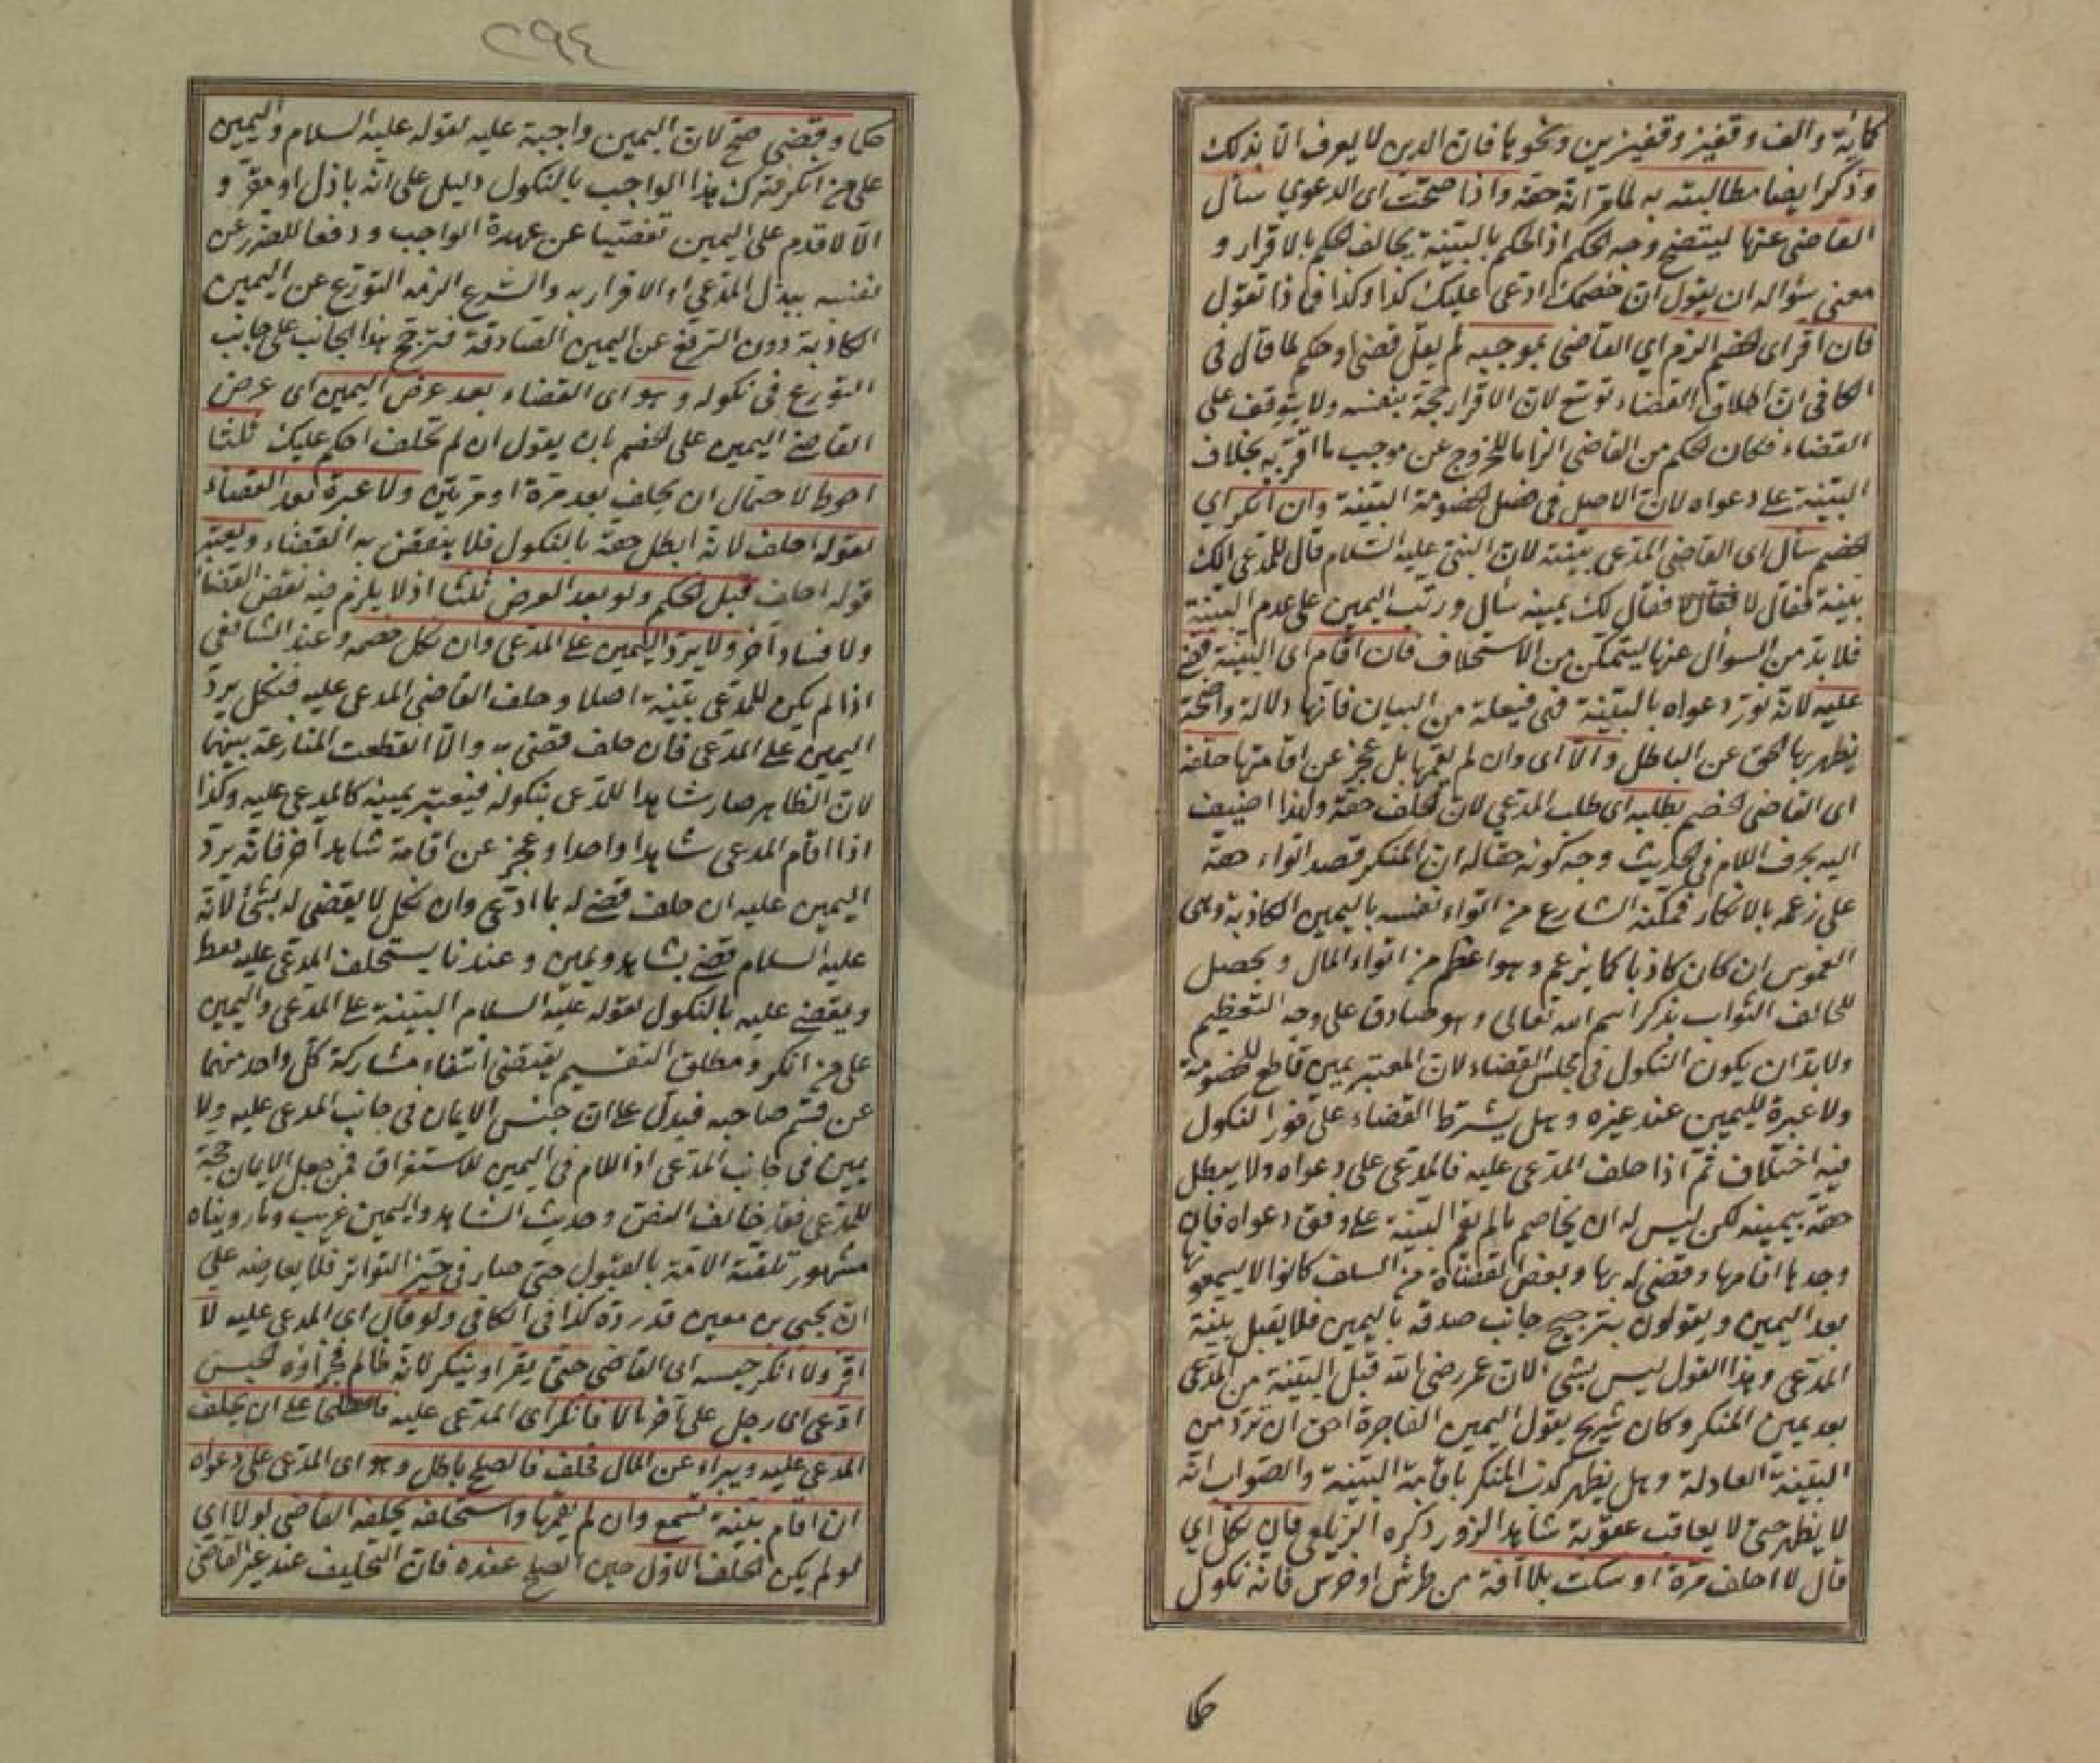 كمائة والف وقفيز وقفيزين ونحوها فان الدين لا يعرف الا بذلك
وذكر ايضا مطالبته به لما مر انه حقه واذا صحت اى الدعوى سأل
القاضى عنها ليتضح وجه الحكم اذ الحكم بالبينة يخالف الحكم بالاقرار و
معنى سؤاله ان يقول ان خصمك ادعى عليك كذا وكذا فماذا تقول
فان اقر اى الخصم الزم اى القاضى بموجبه لم يقل قضى او حكم لما قال فى
الكافى ان اطلاق القضاء توسع لان الاقرار حجة بنفسه ولا يتوقف على
القضاء فكان الحكم من القاضى الزاما للخروج عن موجب ما اقر به بخلاف
البينة على دعواه لان الاصل فى فصل الخصومة البينة وان انكر اى
الخصم سأل اى القاضى المدعى بينته لان النبى عليه السلام قال للمدعى الك
بينة فقال لا فقال لك يمينه سأل ورتب اليمين على عدم البينة
فلا بد من السؤال عنها ليتمكن من الاستحلاف فان اقام اى البينة قضى
عليه لانه نور دعواه بالبينة فهى فيعلة من البيان فانها دلالة واضحة
يظهر بها الحق عن الباطل والا اى وان لم يقمها بل عجز عن اقامتها حلفه
اى القاضى الخصم بطلبه اى طلب المدعى لان الحلف حقه ولهذا اضيف
اليه بحرف اللام فى الحديث وجه كونه حقا له ان المنكر قصد اتواء حقه
على زعمه بالانكار فمكنه الشارع من اتواء نفسه باليمين الكاذبة وهى
الغموس ان كان كاذبا كما يزعم وهو اعظم من اتواء المال ويحصل
للحالف الثواب بذكر اسم الله تعالى وهو صادق على وجه التعظيم
ولا بد ان يكون النكول فى مجلس القضاء لان المعتبر يمين قاطع للخصومة
ولا عبرة لليمين عند غيره وهل يشترط القضاء على فور النكول
فيه اختلاف ثم اذا حلف المدعى عليه فالمدعى على دعواه ولا يبطل
حقه بيمينه لكن ليس له ان يخاصم ما لم يقم البينة على وفق دعواه فان
وجدها اقامها وقضى له بها وبعض القضاة من السلف كانوا لا يسمعونها
بعد اليمين ويقولون بترجيح جانب صدقه باليمين فلا يقبل بينة
المدعى وهذا القول ليس بشئ لان عمر رضى الله قبل البينة من المدعى
بعد يمين المنكر وكان شريح يقول اليمين الفاجرة احق ان ترد من
البينة العادلة وهل يظهر كذب المنكر باقامة البينة والصواب انه
لا يظهر حتى لا يعاقب عقوبة شاهد الزور ذكره الزيلعى فان نكل اى
قال لا احلف مرة او سكت بلا آفة من طرش او خرس فانه نكول
حكا
٢٩٤
حكا وقضى صح لان اليمين واجبة عليه لقوله عليه السلام واليمين
على من انكر فترك هذا الواجب بالنكول دليل على انه باذل او مقر و
الا لاقدم على اليمين تفصيا عن عهدة الواجب ودفعا للضرر عن
نفسه ببذل المدعى او الاقرار به والشرع الزمه التورع عن اليمين
الكاذبة دون الترفع عن اليمين الصادقة فترجح هذا الجانب على جانب
التورع فى نكوله وهو اى القضاء بعد عرض اليمين اى عرض
القاضى اليمين على الخصم بان يقول ان لم تحلف احكم عليك ثلثا
احوط لاحتمال ان يحلف بعد مرة او مرتين ولا عبرة بعد القضاء
لقوله احلف لانه ابطل حقه بالنكول فلا ينتقض به القضاء ويعتبر
قوله احلف قبل الحكم ولو بعد العرض ثلثا اذ لا يلزم فيه نقض القضاء
ولا فساد آخر ولا يرد اليمين على المدعى وان نكل خصمه وعند الشافعى
اذا لم يكن للمدعى بينة اصلا وحلف القاضى المدعى عليه فنكل يرد
اليمين على المدعى فان حلف قضى به والا انقطعت المنازعة بينهما
لان الظاهر صار شاهدا للمدعى بنكوله فيعتبر يمينه كالمدعى عليه وكذا
اذا اقام المدعى شاهدا واحدا وعجز عن اقامة شاهد آخر فانه يرد
اليمين عليه ان حلف قضى له بما ادعى وان نكل لا يقضى له بشئ لانه
عليه السلام قضى بشاهد ويمين وعندنا يستحلف المدعى عليه فقط
ويقضى عليه بالنكول لقوله عليه السلام البينة على المدعى واليمين
على من انكر ومطلق التقسيم يقتضى انتفاء مشاركة كل واحد منهما
عن قسم صاحبه فيدل على ان جنس الايمان فى جانب المدعى عليه ولا
يمين فى جانب المدعى اذ اللام فى اليمين للاستغراق فمن جعل الايمان حجة
للمدعى فقد خالف النص وحديث الشاهد واليمين غريب وما رويناه
مشهور تلقته الامة بالقبول حتى صار فى حيز التواتر فلا يعارضه على
ان يحيى بن معين قد رده كذا فى الكافى ولو قال اى المدعى عليه لا
اقر ولا انكر حبسه اى القاضى حتى يقر او ينكر لانه ظالم فجزاؤه الحبس
ادعى اى رجل على آخر مالا فانكر اى المدعى عليه فاصطلحا على ان يحلف
المدعى عليه ويبراء عن المال فحلف فالصلح باطل وهو اى المدعى على دعواه
ان اقام بينة تسمع وان لم يقمها واستحلفه يحلفه القاضى لو لا اى
لو لم يكن الحلف الاول حين الصلح عنده فان التحليف عند غير القاضى